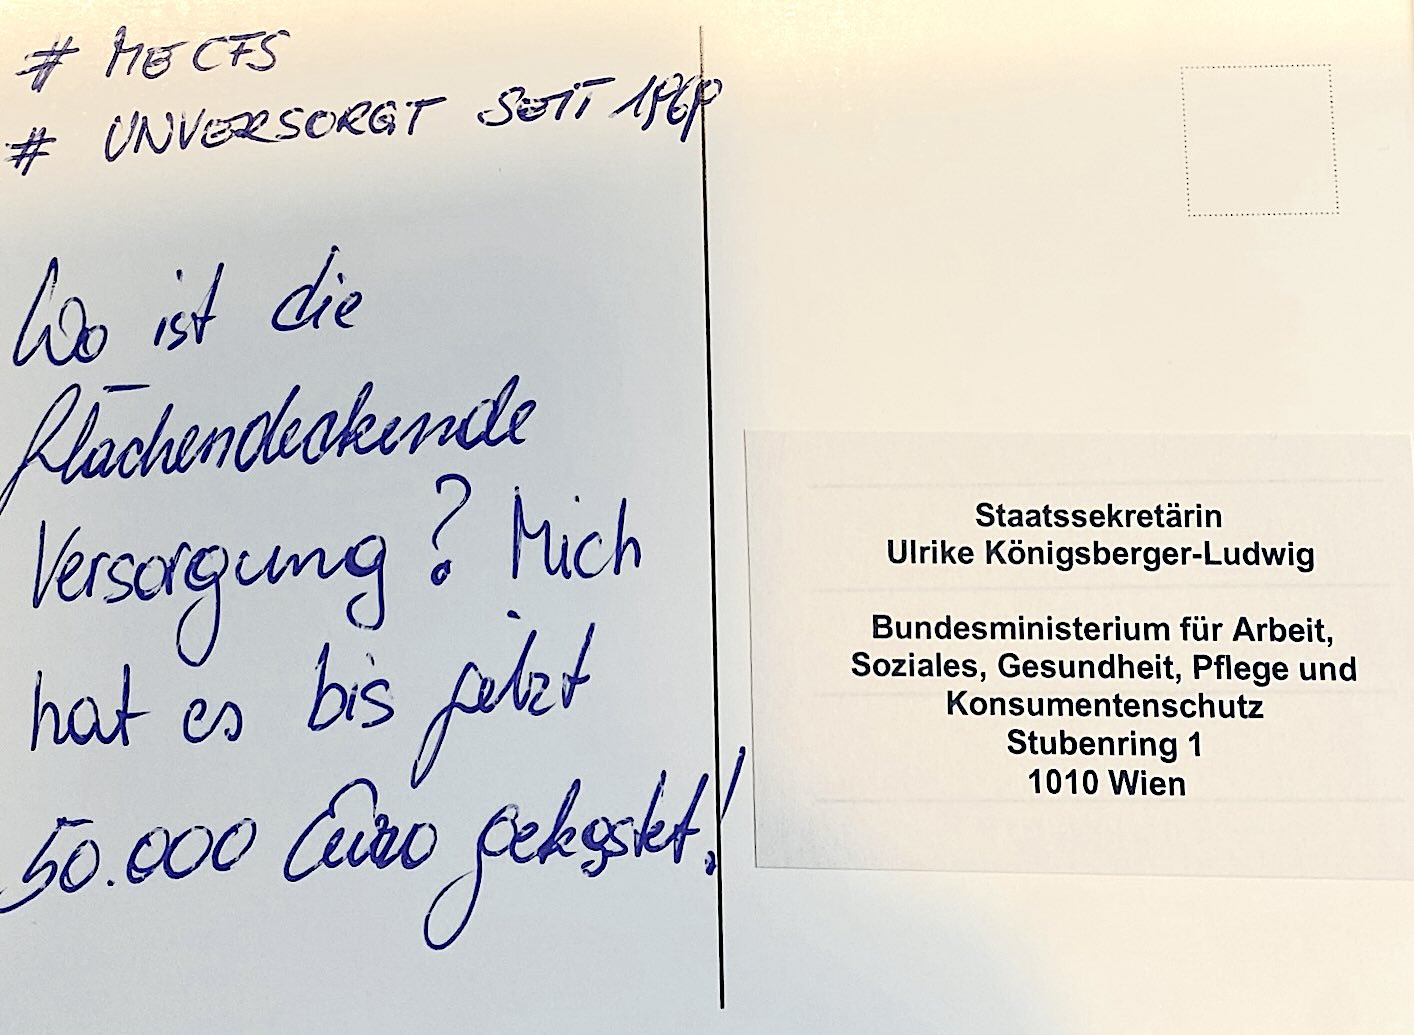 # ME CFS
# UNVERSORGT SEIT 1969
Wo ist die
flächendeckende
Versorgung? Mich
hat es bis jetzt
50.000 Euro gekostet!
Staatssekretärin
Ulrike Königsberger-Ludwig
Bundesministerium für Arbeit,
Soziales, Gesundheit, Pflege und
Konsumentenschutz
Stubenring 1
1010 Wien